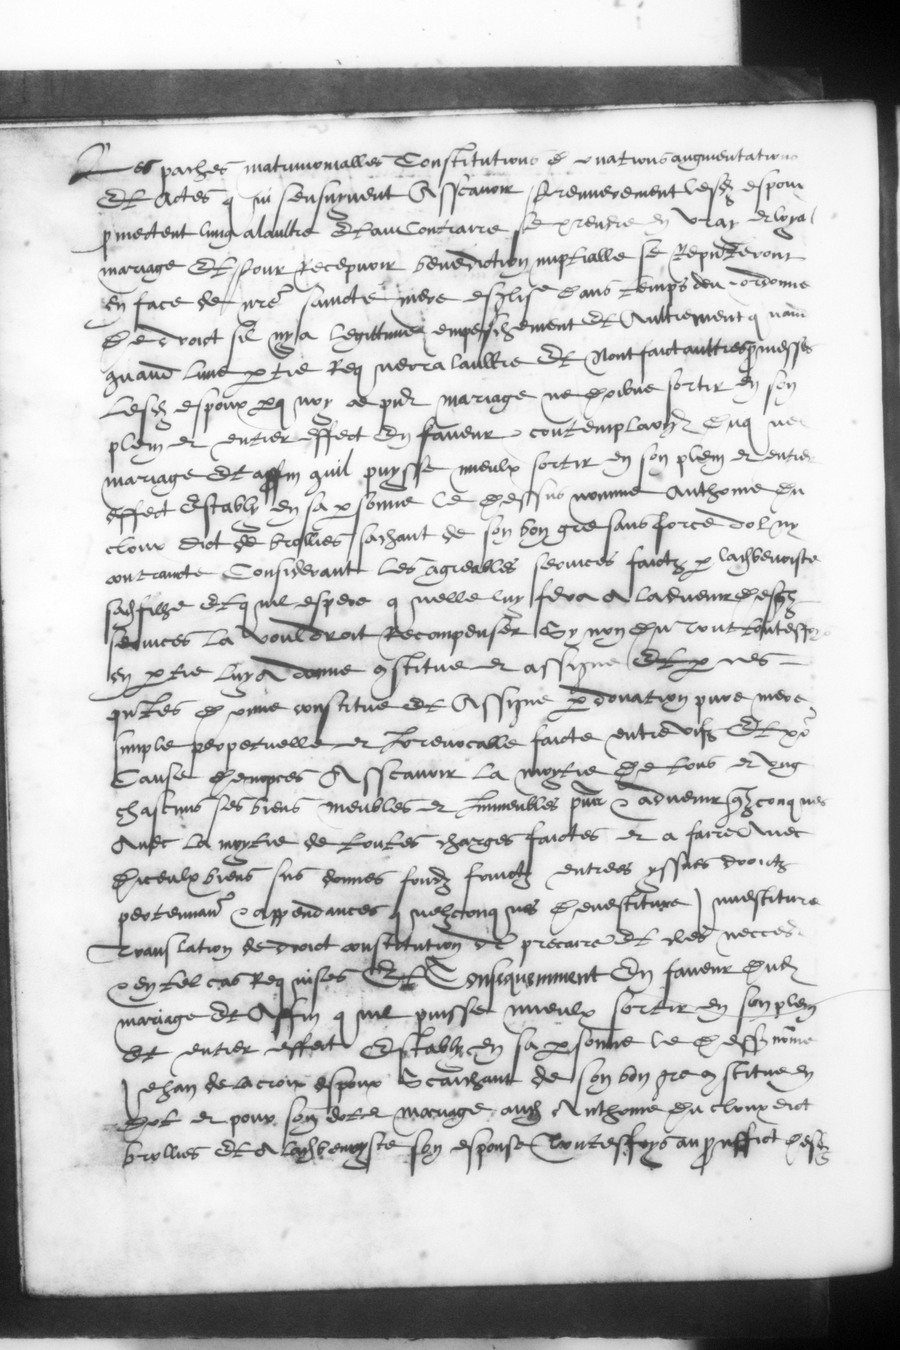 Les paches matrimonialles Constitutions donations augmentations
Et Actes qui sensuyvent Asscavoir Premierement lesd espoux
pmectent lung alaultre Et au Contraire se prendre en vray et loyal
mariage Et Pour Recepvoir benediction nuptialle se Repnteront
en face de nre saincte mere esglise dans temps deu ordonne
De droict sil nya legittime empeschement Et Aultrement q nam
quand lune ptie Req uerra laultre Et Nont faict aultres pmesses
Lesd espoux pq noy ce pnt mariage ne doibve sortir en son
plein et entier effect En faveur contemplaon dud
mariage Et affin quil puysse mieulx sortir en son plein et entier
effect Estably en sa psonne le dessus nomme Anthoine du
cloux dict de brollies sachant de son bon gre sans force dol ny
contraincte Considerant les agreables services faictz p lad benoiste
sad fillie Et quil espere q uelle luy fera A ladvenir desqlz
services la vouldroit Recompenser Sy non du tout touteffoys
en ptie luy A donne constitue et assigne Et p ces
pntes donne constitue et Assigne p donation pure mere
simple perpetuelle et Irrevocalle faicte entre vifz Et po
Cause de nopces Asscavoir la moytie de tous et ung
chascuns ses biens meubles et Immeubles pns advenir qlzconques
Avec la moytie de toutes charges faictes et a faire Avec
diceulx biens sus donnes fondz fruictz entrees yssues droictz
pertenanc appendances quelzconques devestiture Investiture
Translation de droict constitution de precaire Et cles necces
en tel cas Requises Et Consequemment En faveur dud
mariage Et Affin quil puisse mieulx sortir en son plein
Et entier effect Estably en sa psonne le dessus nomme
Jehan de la croix espoux Scaichant de son bon gre constitue en
Dot et pour son dote mariage aud Anthoine du cloux dict
brollies Et A lad benoyste son espouse touteffoys au prouffict desd